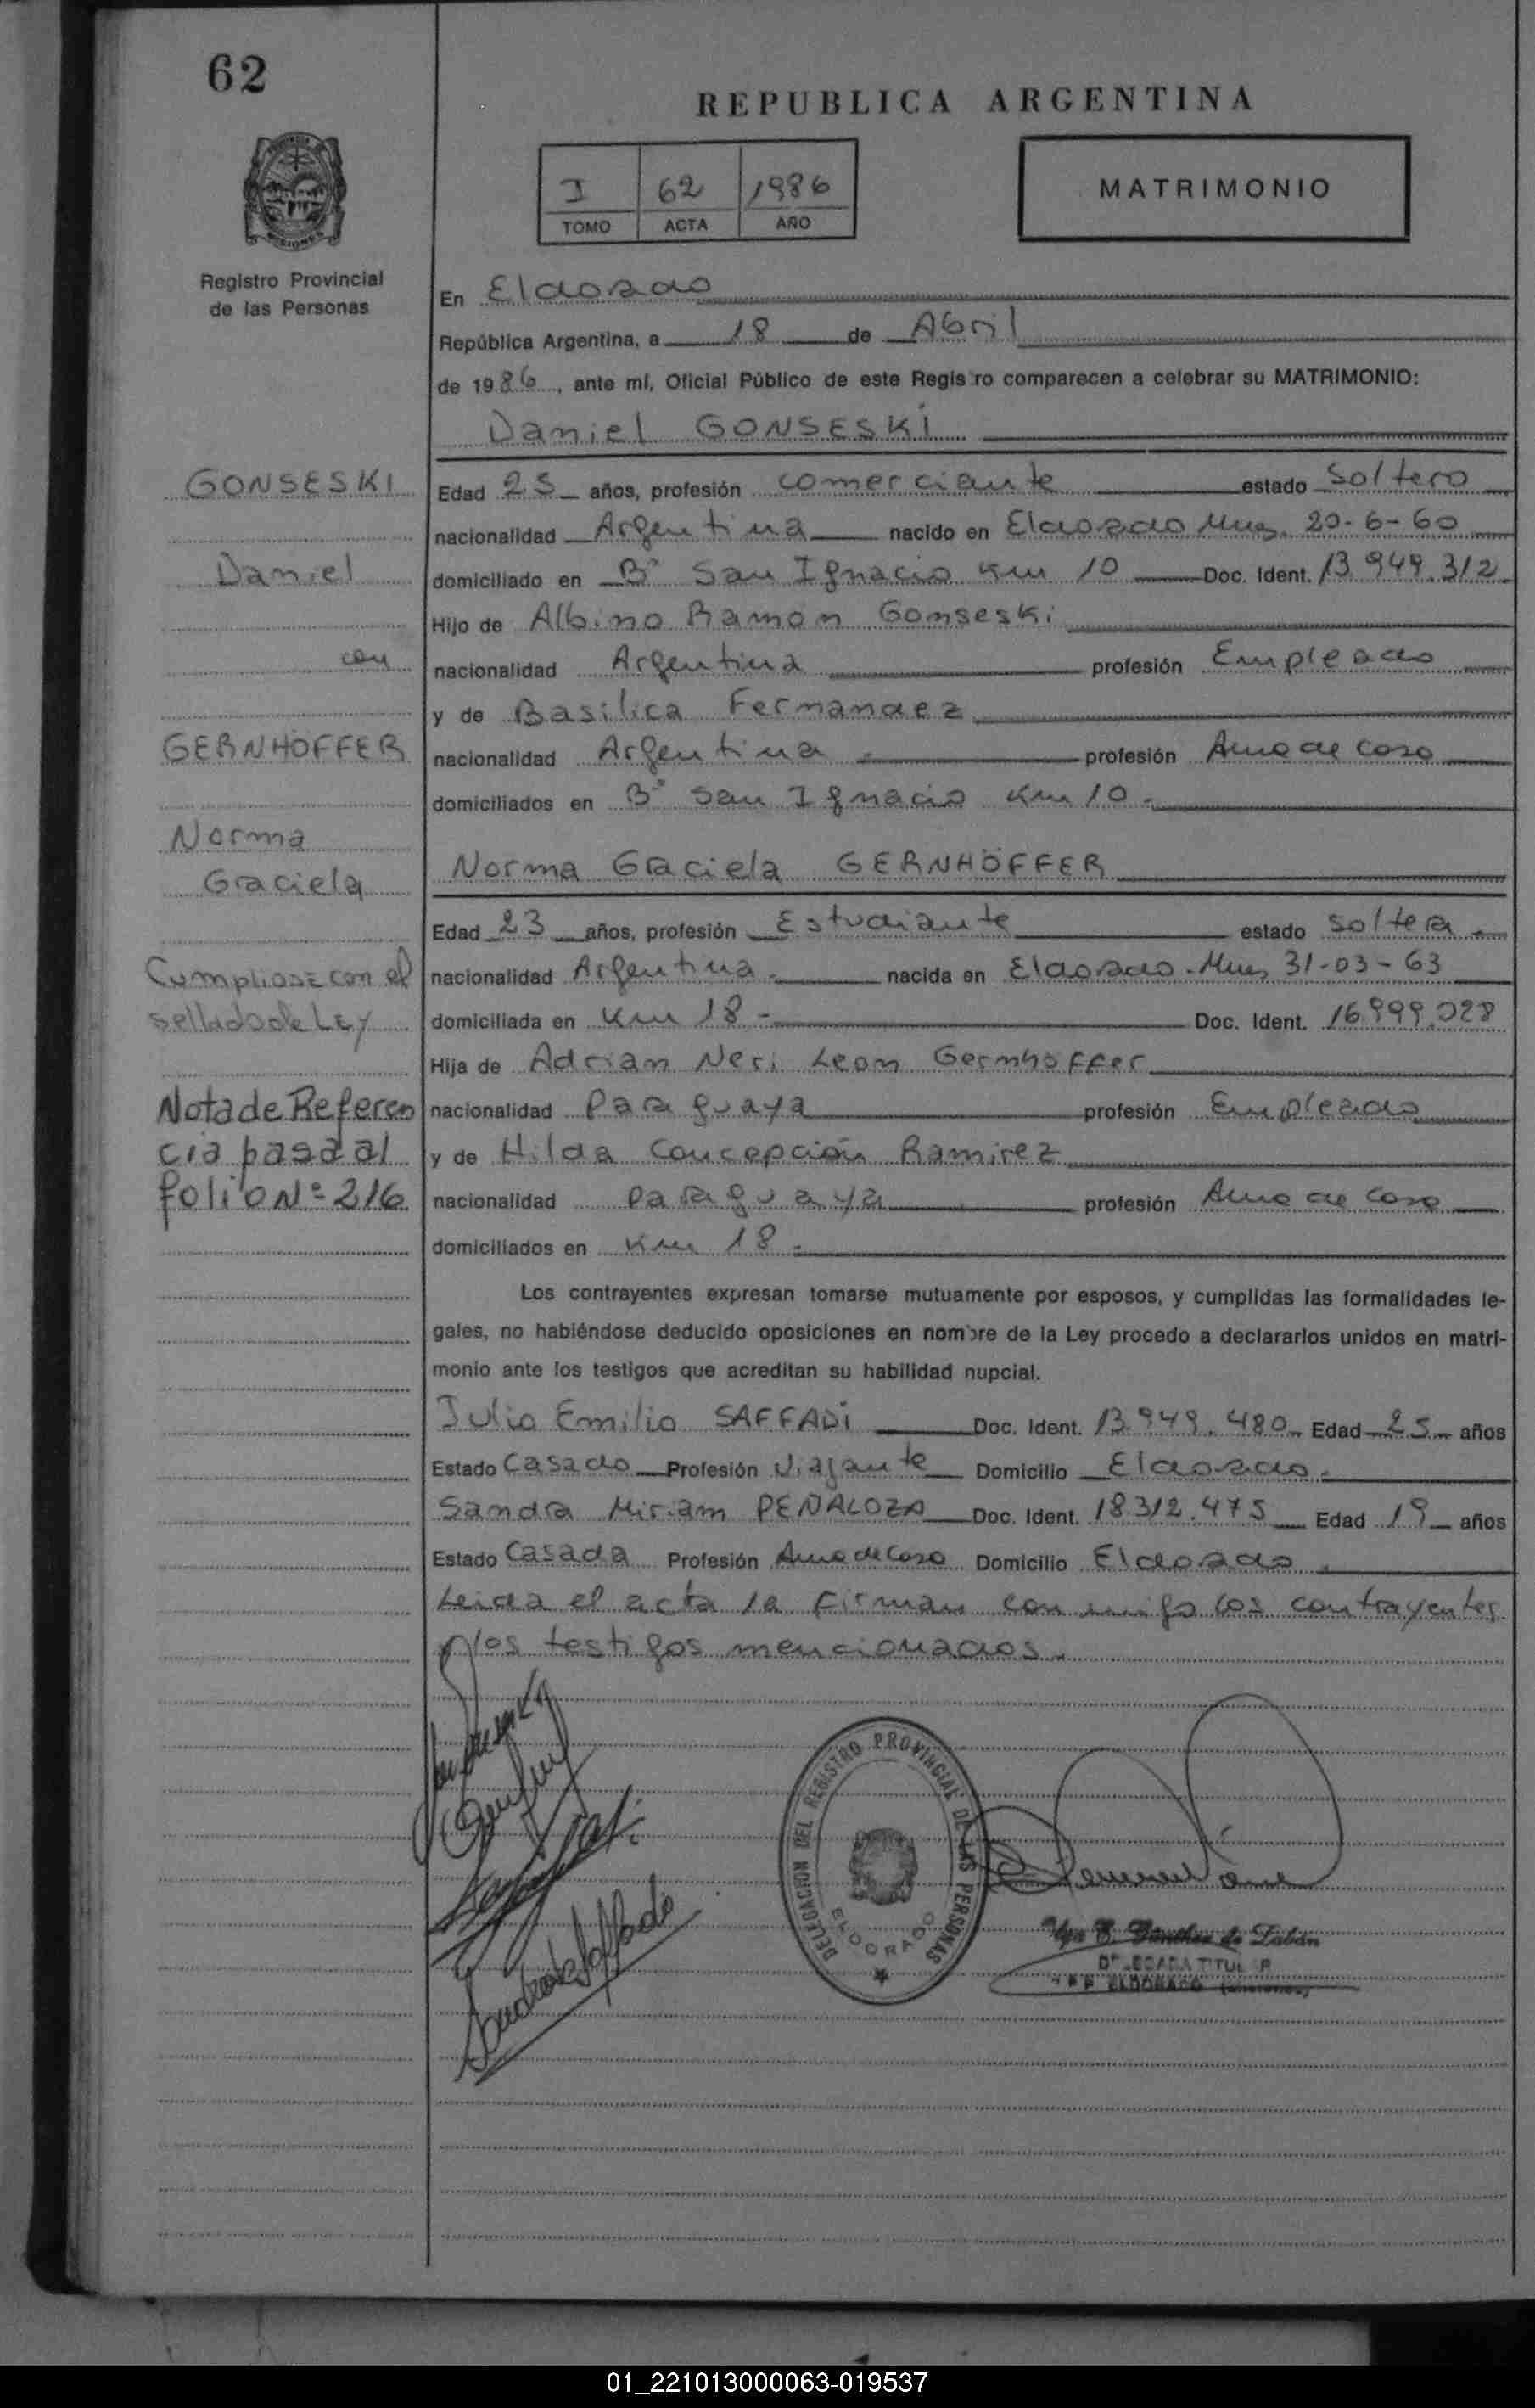 62
REPUBLICA ARGENTINA
I 62 1986
TOMO ACTA AÑO
MATRIMONIO
MISIONES
Registro Provincial
de las Personas
En Eldorado
República Argentina, a 18 de Abril
de 1986, ante mí, Oficial Público de este Regis ro comparecen a celebrar su MATRIMONIO:
Daniel GONSESKI
GONSESKI
Edad 25 años, profesión comerciante estado Soltero
nacionalidad Argentina nacido en Eldorado Mnes. 20-6-60
Daniel
domiciliado en B° San Ignacio Km 10 Doc. Ident. 13.949.312
Hijo de Albino Ramon Gonseski
con
nacionalidad Argentina profesión Empleado
y de Basilica Fernandez
GERNHÖFFER
nacionalidad Argentina profesión Ama de casa
domiciliados en B° San Ignacio Km 10.
Norma
Graciela
Norma Graciela GERNHÖFFER
Edad 23 años, profesión Estudiante estado soltera
Cumpliose con el
nacionalidad Argentina. nacida en Eldorado. Mnes 31-03-63
sellado de LEY
domiciliada en Km 18 - Doc. Ident. 16.999.028
Hija de Adrian Neri Leon Gernhoffer
Nota de Referen
nacionalidad Paraguaya profesión Empleado
cia pasa al
y de Hilda Concepción Ramirez
folio N° 216
nacionalidad Paraguaya profesión Ama de casa
domiciliados en Km 18.
Los contrayentes expresan tomarse mutuamente por esposos, y cumplidas las formalidades le-
gales, no habiéndose deducido oposiciones en nombre de la Ley procedo a declararlos unidos en matri-
monio ante los testigos que acreditan su habilidad nupcial.
Julio Emilio SAFFADI Doc. Ident. 13.949.480 Edad 25 años
Estado Casado Profesión Viajante Domicilio Eldorado.
Sandra Miriam PEÑALOZA Doc. Ident. 18312.475 Edad 19 años
Estado Casada Profesión Ama de casa Domicilio Eldorado
Leida el acta la firman conmigo los contrayentes
y los testigos mencionados.
DELEGACION DEL REGISTRO PROVINCIAL DE LAS PERSONAS
ELDORADO
DELEGADA TITULAR
ELDORADO (Misiones)
01_221013000063-019537